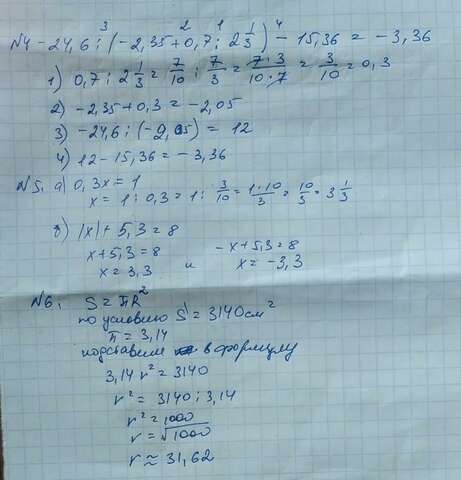 №4 -24,6 : (-2,35 + 0,7 : 2 1/3) - 15,36 = -3,36
1) 0,7 : 2 1/3 = 7/10 : 7/3 = 7·3/10·7 = 3/10 = 0,3
2) -2,35 + 0,3 = -2,05
3) -24,6 : (-2,05) = 12
4) 12 - 15,36 = -3,36
№5. а) 0,3x = 1
x = 1 : 0,3 = 1 : 3/10 = 1·10/3 = 10/3 = 3 1/3
в) |x| + 5,3 = 8
x + 5,3 = 8 -x + 5,3 = 8
x = 3,3 и x = -3,3
№6. S = πR²
по условию S = 3140 см²
π = 3,14
подставим в формулу
3,14 r² = 3140
r² = 3140 : 3,14
r² = 1000
r = √1000
r ≈ 31,62